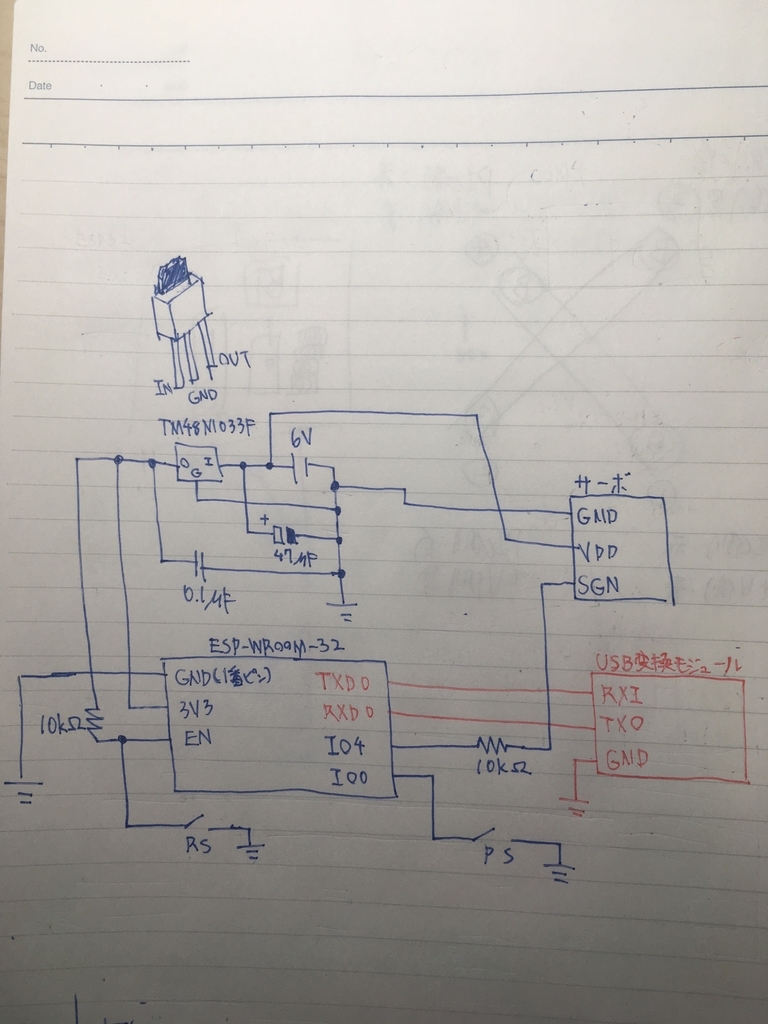 No.
Date
OUT
IN
GND
TM48M033F
O G I
6V
+
47μF
0.1μF
サーボ
GND
VDD
SGN
ESP-WROOM-32
GND(1番ピン)
3V3
EN
TXD0
RXD0
IO4
IO0
10kΩ
10kΩ
USB変換モジュール
RXI
TXO
GND
RS
PS